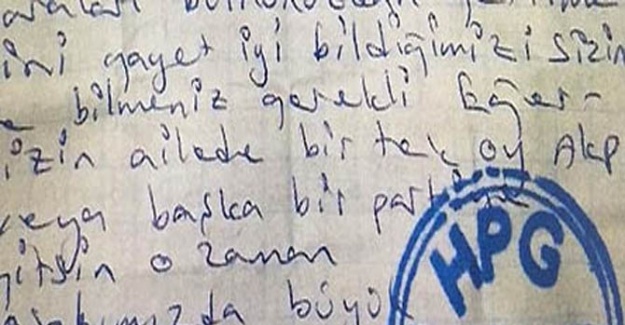 ini gayet iyi bildiğimizi sizin
bilmeniz gerekli Eğer-
izin ailede bir tek oy Akp
veya başka bir partiye
gitsin o zaman
büyük
HPG